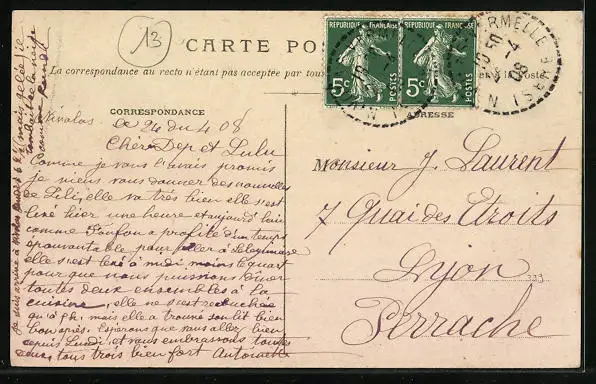 13
CARTE POS
La correspondance au recto n'étant pas acceptée par tous
REPUBLIQUE FRANÇAISE
5c POSTES
REPUBLIQUE FRANÇAISE
5c POSTES
4
08
CORRESPONDANCE
ADRESSE
Nivolas le 24 du 4 08
Chér Dep et Lulu
Comme je vous l'avais promis
je viens vous donner des nouvelles
de Lili, elle va très bien elle s'est
levé hier une heure et aujourd'hui
comme Fanfan a profité d'un temps
épouvantable pour aller à
elle s'est levé à midi moins le quart
pour que nous puissions dîner
toutes deux ensembles à la
cuisine, elle ne s'est recouchée
qu'à 4h, mais elle a trouvé son lit bien
bon après. Espérons que vous allez bien
depuis Lundi, et vous embrassons toutes
deux, tous trois bien fort Antoinette
Monsieur J. Laurent
7 Quai des Etroits
Lyon
Perrache